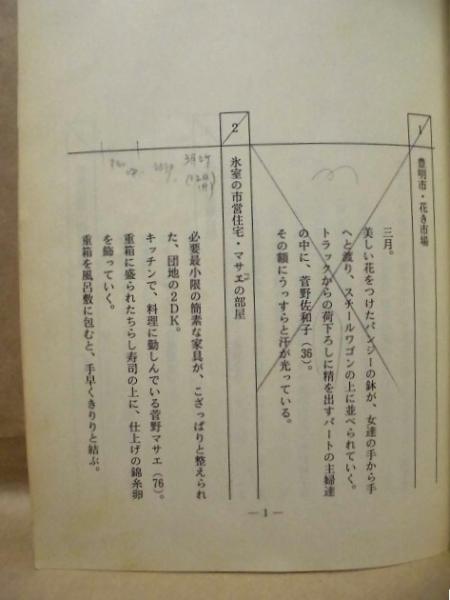 1
豊明市・花き市場
三月。
美しい花をつけたパンジーの鉢が、女達の手から手
へと渡り、スチールワゴンの上に並べられていく。
トラックからの荷下ろしに精を出すパートの主婦達
の中に、菅野佐和子（36）。
その額にうっすらと汗が光っている。
2
氷室の市営住宅・マサエの部屋
必要最小限の簡素な家具が、こざっぱりと整えられ
た、団地の２DK。
キッチンで、料理に勤しんでいる菅野マサエ（76）。
重箱に盛られたちらし寿司の上に、仕上げの錦糸卵
を飾っていく。
重箱を風呂敷に包むと、手早くきりりと結ぶ。
— 1 —